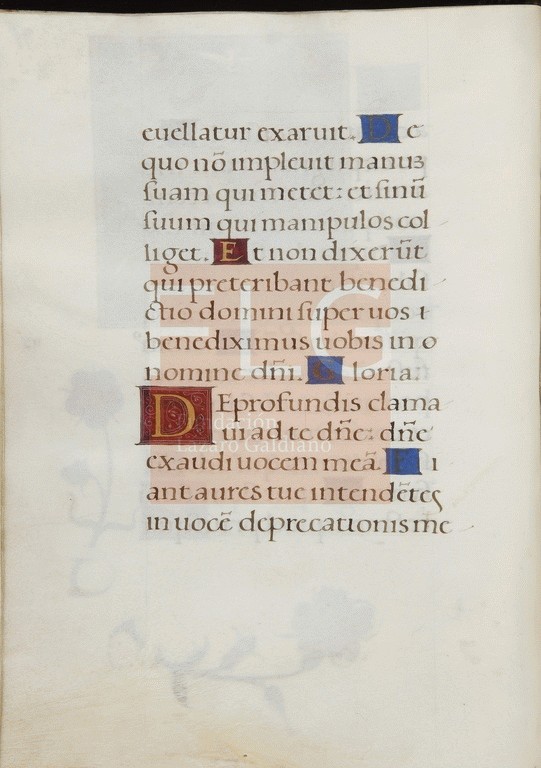 euellatur exaruit. De
quo nõ impleuit manus
suam qui metet: et sinũ
suum qui manipulos col
liget. Et non dixerũt
qui preteribant benedi
ctio domini super uos i
benediximus uobis in o
nomine dñi. Gloria.
DEprofundis clama
ui ad te dñe: dñe
exaudi uocem meã. Fi
ant aures tue intendẽtes
in uocẽ deprecationis me
FLG
Fundación
Lázaro Galdiano